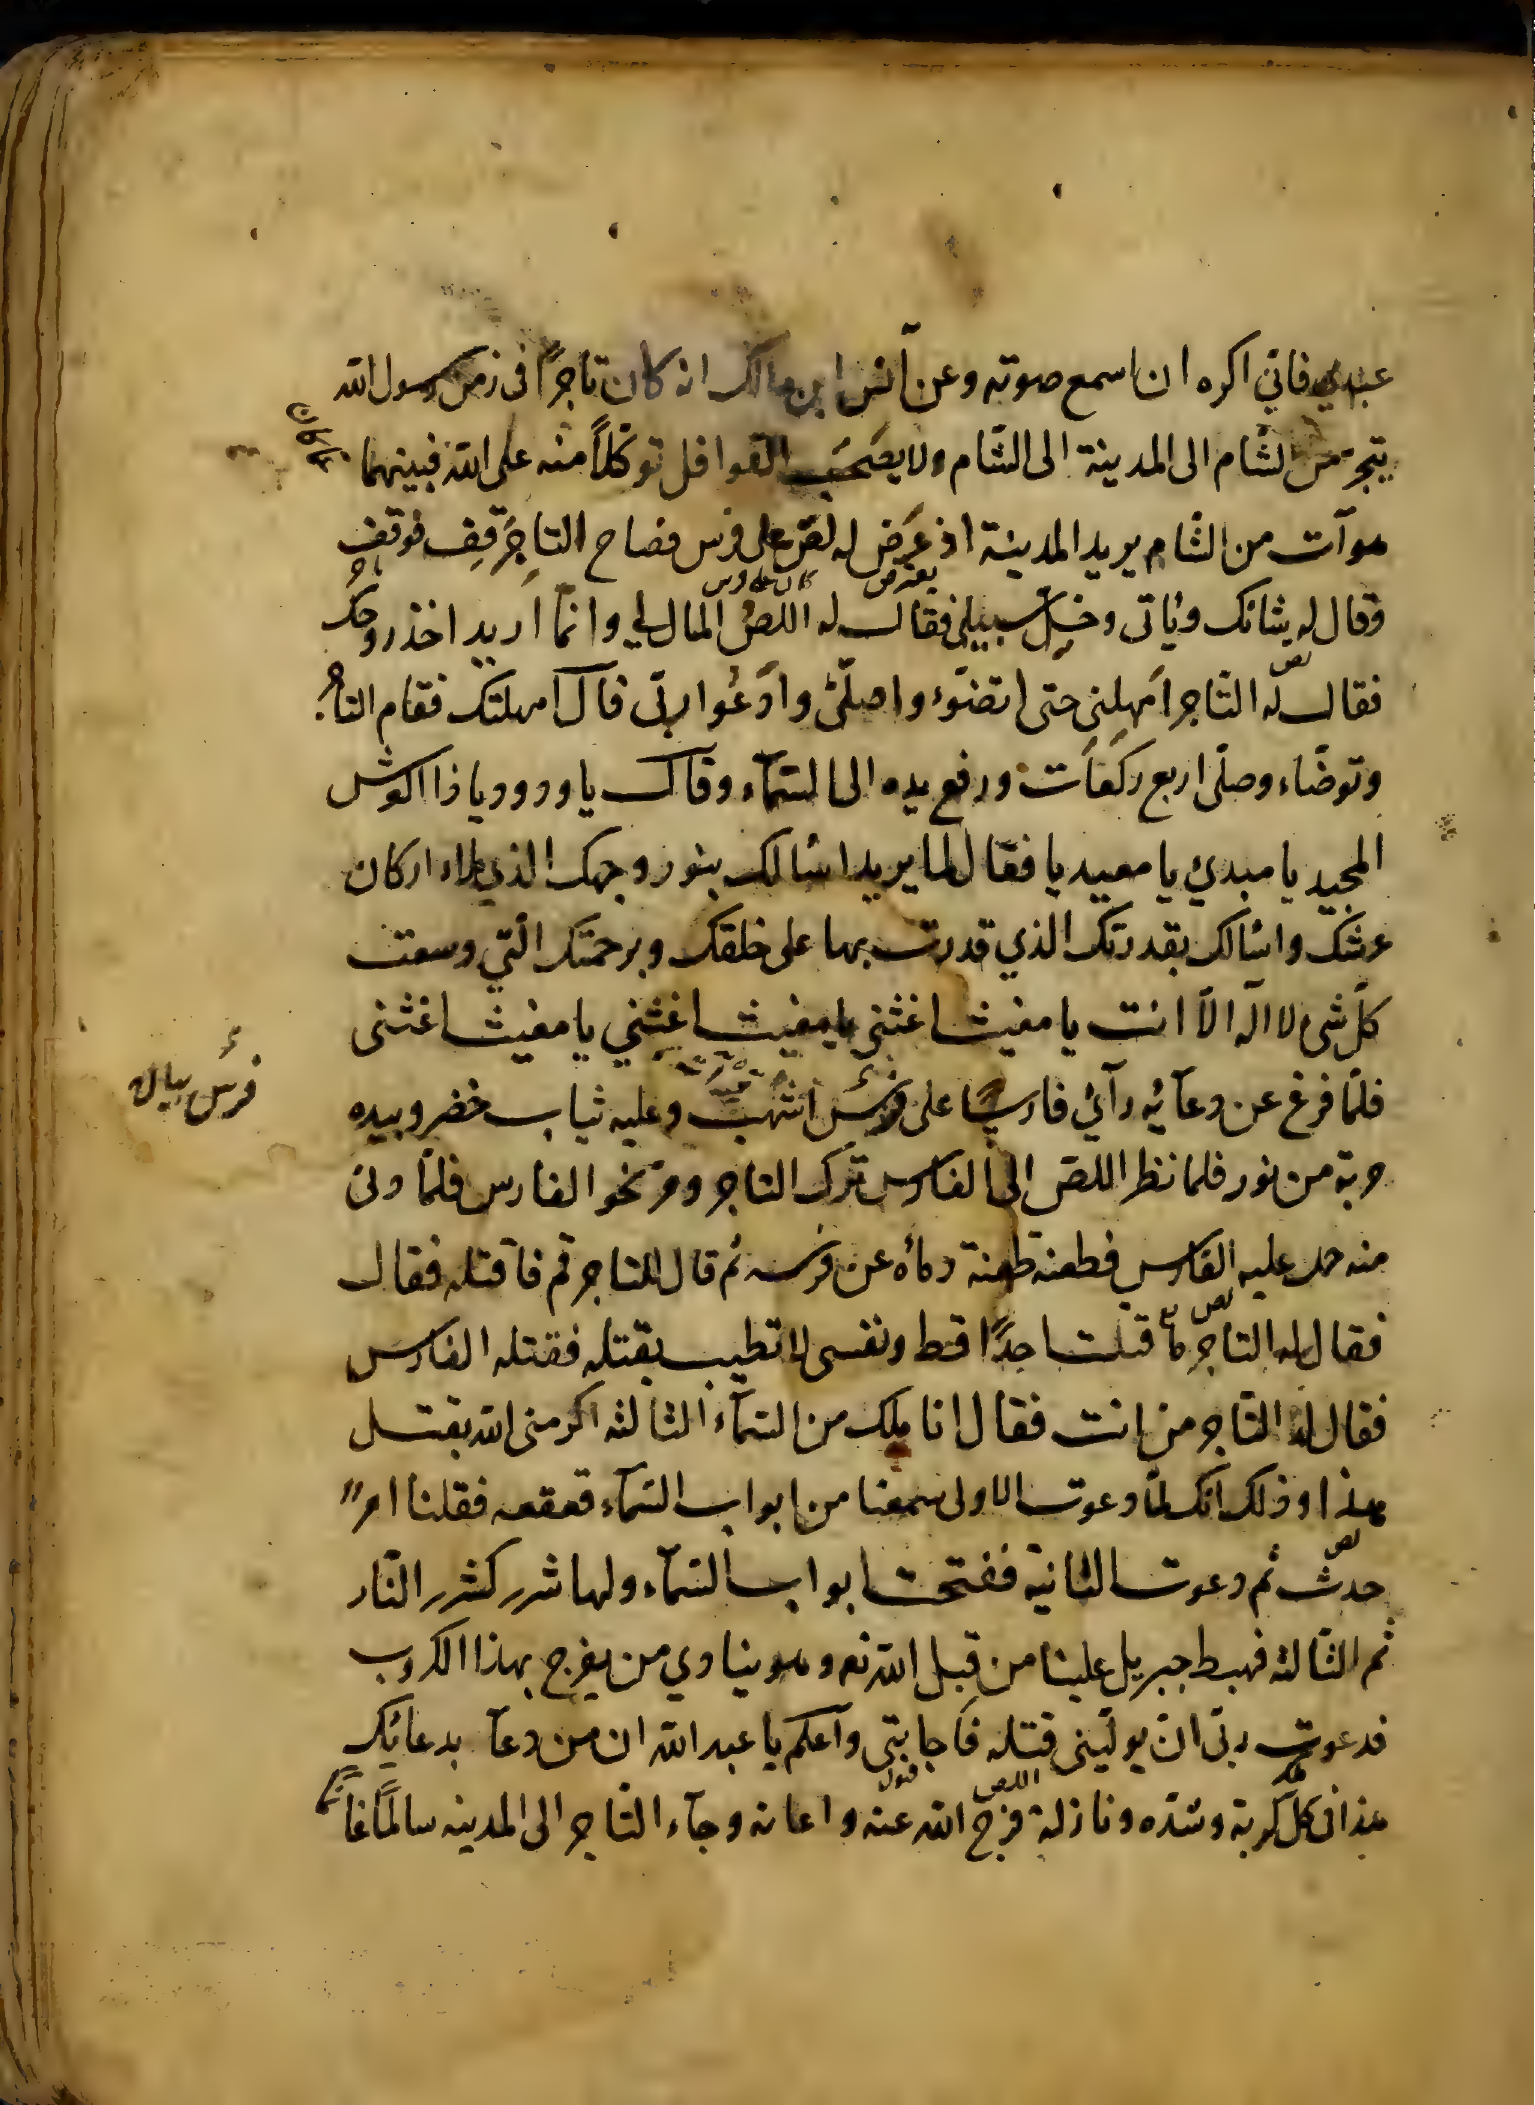 عبدي فاني اكره ان اسمع صوته وعن آنس ابن مالك انه كان تاجرًا في زمن رسول الله
يتجر من الشام الى المدينة الى الشام ولا يصحب القوافل توكلاً منه على الله فبينهما
هو آت من الشام يريد المدينة اذ عرض له لص على فرس فصاح التاجر قف فوقف
وقال له شانك وياتي وخل سبيلي فقال له اللص المال لي وانما اريد اخذ روحك
فقال له التاجر امهلني حتى اتضوء واصلي وادعوا ربي قال امهلتك فقام التاجر
وتوضاء وصلى اربع ركعات ورفع يده الى السمآء وقال يا ودود يا ذا العرش
المجيد يا مبدئ يا معيد يا فعال لما يريد اسالك بنور وجهك الذي ملاء اركان
عرشك واسالك بقدرتك الذي قدرت بها على خلقك وبرحمتك التي وسعت
كل شيء لا اله الا انت يا مغيث اغثني يا مغيث اغثني يا مغيث اغثني
فلما فرغ عن دعآئه رآئ فارسًا على فرس اشهب وعليه ثياب خضر وبيده
فرس بيان
حربة من نور فلما نظر اللص الى الفارس ترك التاجر ومر نحو الفارس فلما دنى
منه حمل عليه الفارس فطعنه طعنة رماه عن فرسه ثم قال للتاجر قم فاقتله فقال
فقال له التاجر ما قتلت احدًا قط ونفسي لا تطيب بقتله فقتله الفارس
فقال له التاجر من انت فقال انا ملك من السمآء الثالثه اكرمني الله بقتل
هذا وذلك انك لما دعوت الاولى سمعنا من ابواب السمآء قعقعه فقلنا امر
حدث ثم دعوت الثانية ففتحت ابواب السمآء ولها شرر كشرر النار
ثم الثالثة فهبط جبريل علينا من قبل الله تع وهو ينادي من يفرج بهذا الكروب
فدعوت ربي ان يوليني قتله فاجابتي وآعلم يا عبد الله ان من دعآ بدعائك
هذا في كل كربة وشده ونازلة فرج الله عنه واعانه وجآء التاجر الى المدينه سالمًا غانمًا